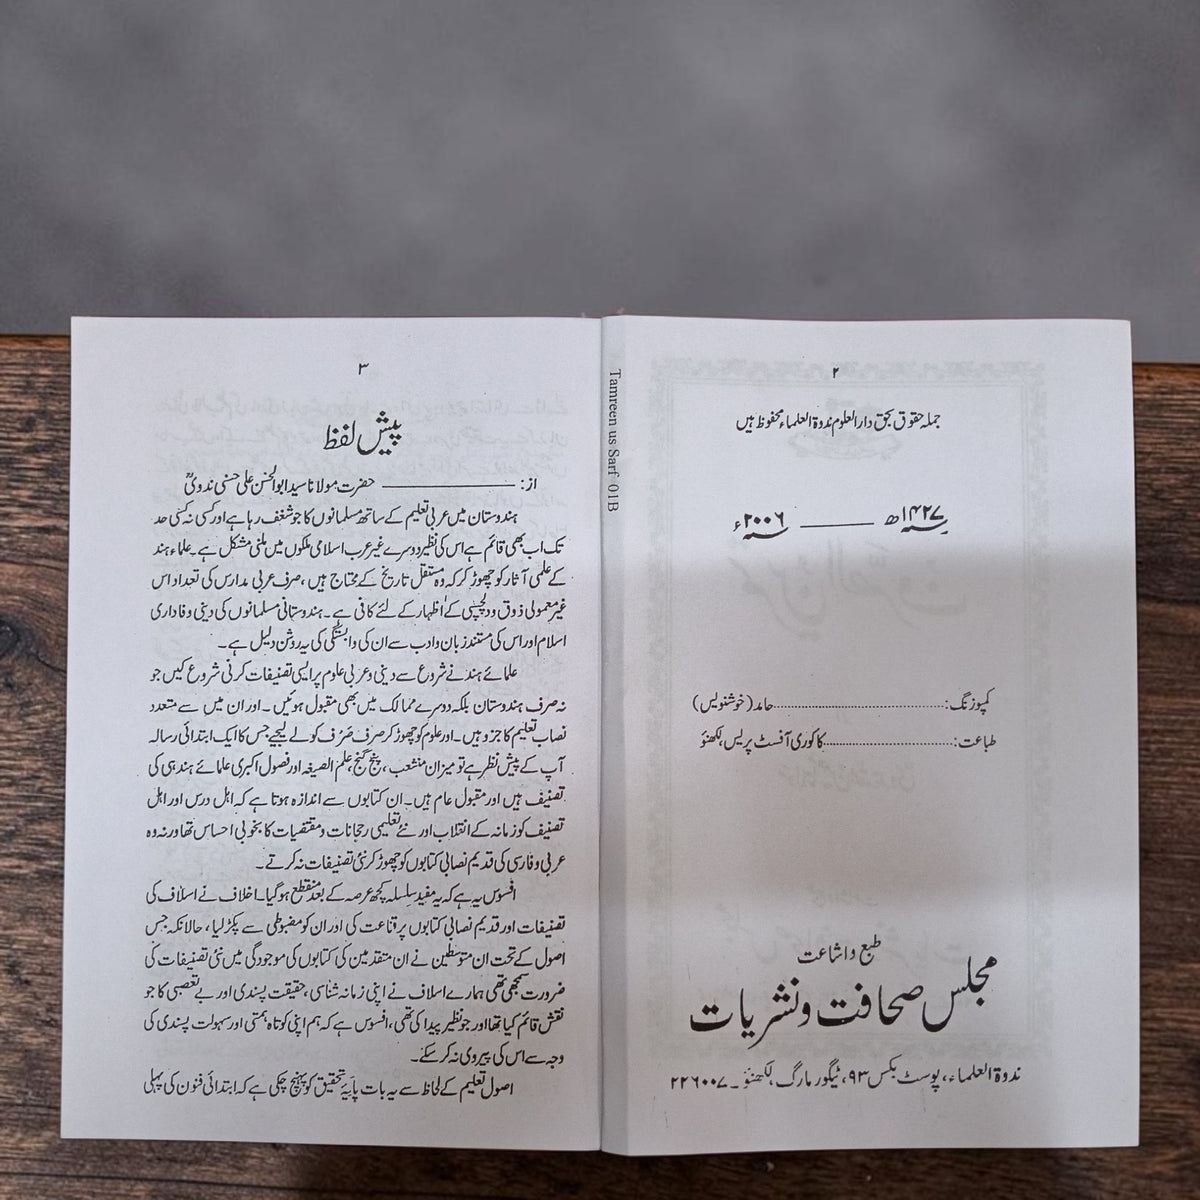 ۲
جملہ حقوق بحق دارالعلوم ندوۃ العلماء محفوظ ہیں
۱۴۲۷ھ ——— ۲۰۰۶ء
کمپوزنگ:..............................حامد (خوشنویس)
طباعت:......................کاکوری آفسٹ پریس، لکھنؤ
طبع و اشاعت
مجلس صحافت و نشریات
ندوۃ العلماء، پوسٹ بکس ۹۳، ٹیگور مارگ، لکھنؤ۔ ۲۲۶۰۰۷
Tamreen us Sarf 01B
۳
پیش لفظ
از: ——— حضرت مولانا سید ابوالحسن علی حسنی ندویؒ
ہندوستان میں عربی تعلیم کے ساتھ مسلمانوں کا جو شغف رہا ہے اور کسی نہ کسی حد
تک اب بھی قائم ہے اس کی نظیر دوسرے غیر عرب اسلامی ملکوں میں ملنی مشکل ہے۔ علماء ہند
کے علمی آثار کو چھوڑ کر کہ وہ مستقل تاریخ کے محتاج ہیں، صرف عربی مدارس کی تعداد اس
غیر معمولی ذوق و دلچسپی کے اظہار کے لئے کافی ہے۔ ہندوستانی مسلمانوں کی دینی وفاداری
اسلام اور اس کی مستند زبان و ادب سے ان کی وابستگی کی یہ روشن دلیل ہے۔
علمائے ہند نے شروع سے دینی و عربی علوم پر ایسی تصنیفات کرنی شروع کیں جو
نہ صرف ہندوستان بلکہ دوسرے ممالک میں بھی مقبول ہوئیں۔ اور ان میں سے متعدد
نصاب تعلیم کا جزو ہیں۔ اور علوم کو چھوڑ کر صرف صَرف کو لے لیجیے جس کا ایک ابتدائی رسالہ
آپ کے پیش نظر ہے تو میزان منشعب، پنج گنج، علم الصیغہ اور فصول اکبری علمائے ہند ہی کی
تصنیف ہیں اور مقبول عام ہیں۔ ان کتابوں سے اندازہ ہوتا ہے کہ اہل درس اور اہل
تصنیف کو زمانہ کے انقلاب اور نئے تعلیمی رجحانات و مقتضیات کا بخوبی احساس تھا ورنہ وہ
عربی و فارسی کی قدیم نصابی کتابوں کو چھوڑ کر نئی تصنیفات نہ کرتے۔
افسوس یہ ہے کہ یہ مفید سلسلہ کچھ عرصہ کے بعد منقطع ہو گیا۔ اخلاف نے اسلاف کی
تصنیفات اور قدیم نصابی کتابوں پر قناعت کی اور ان کو مضبوطی سے پکڑ لیا، حالانکہ جس
اصول کے تحت ان متوسطین نے ان متقدمین کی کتابوں کی موجودگی میں نئی تصنیفات کی
ضرورت سمجھی تھی ہمارے اسلاف نے اپنی زمانہ شناسی، حقیقت پسندی اور بے تعصبی کا جو
نقش قائم کیا تھا اور جو نظیر پیدا کی تھی، افسوس ہے کہ ہم اپنی کوتاہ ہمتی اور سہولت پسندی کی
وجہ سے اس کی پیروی نہ کر سکے۔
اصول تعلیم کے لحاظ سے یہ بات پایۂ تحقیق کو پہنچ چکی ہے کہ ابتدائی فنون کی پہلی